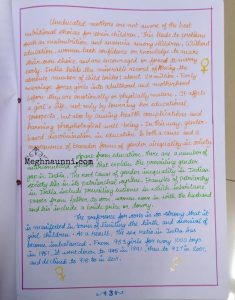 Uneducated mothers are not aware of the best
nutritional choices for their children. This leads to problems
such as malnutrition, and anaemia among children. Without
education, women lack confidence on knowledge to make
their own choice, and are encouraged for forced to marry
early. India holds the record of having the
absolute number of child brides: about 24 million. Early
marriage forces girls into adulthood and motherhood
before they are emotionally or physically mature. It affects
a girl's life, not only by lowering her educational
prospects, but also by causing health complications and
harming psychological well-being. In this way, gender-
based discrimination in education is both a cause and a
consequence of broader forms of gender inequality in society
Meghnaunni.com
Apart from education, there are a number of
that explains the prevailing gender
gap in India. The root cause of gender inequality in Indian
society lies in its patriarchal system. Examples of patriarchy
in India include prevailing customs in which inheritance
passes from father to son, women move in with the husband
and his include a bride price or dowry.
The preference for sons is so strong that it
is manifested in terms of limiting the birth and survival of
girl children. As a result, the sex ratio in India has
become imbalanced. From 953 girls for every 1000 boys
in 1951, it went down to 945 in 1991, then to 927 in 2001,
and declined to 918 in 2011.